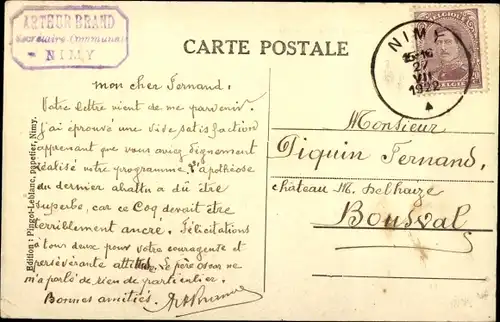 ARTHUR BRAND
Secrétaire Communal
NIMY
CARTE POSTALE
NIMY
15-16
27
VII
1922
BELGIE
mon cher Fernand.
Votre lettre vient de me parvenir.
J'ai éprouvé une vive satisfaction
apprenant que vous aviez dignement
réalisé votre programme. L'apothéose
du dernier abattu a dû être
superbe, car ce Coq devait être
terriblement ancré. Félicitations
à tous deux pour votre courageuse et
persévérante attitude. Le père Oscar ne
m'a parlé de rien de particulier.
Bonnes amitiés.
Monsieur
Piquin Fernand,
château M. Delhaye
Bousval
Edition : Pingot-Leblanc, papetier, Nimy.